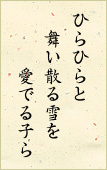 ひらひらと
舞い散る雪を
愛でる子ら